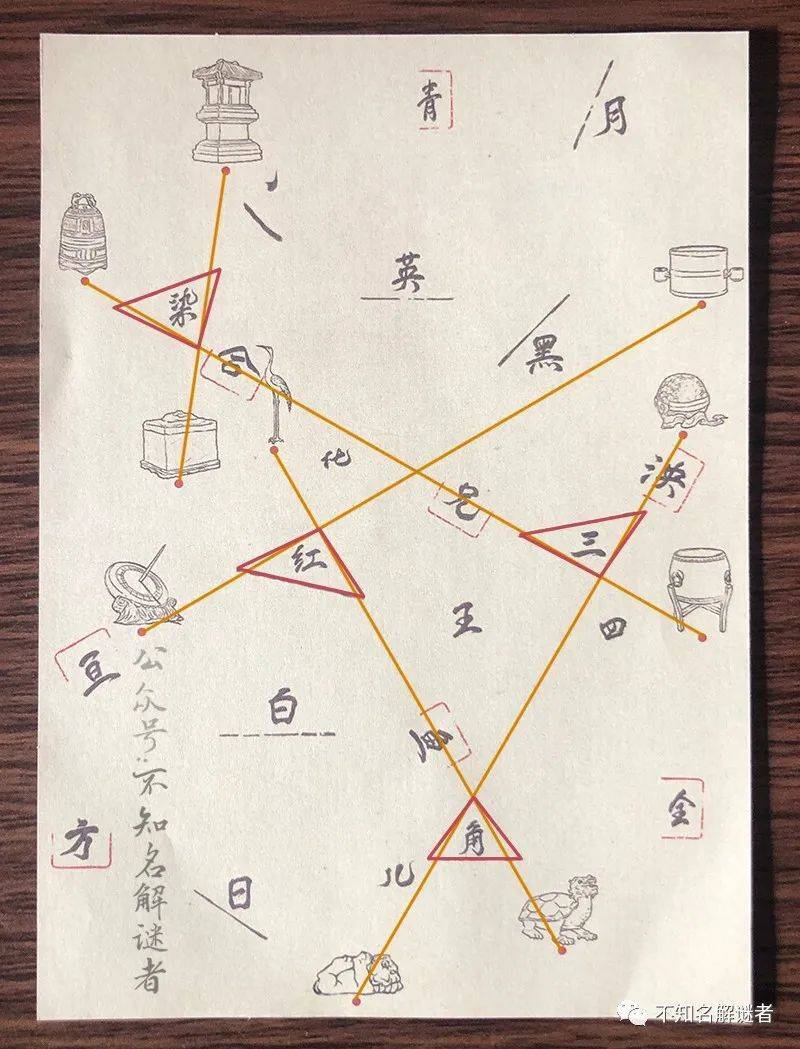 青
月
英
染
黑
化
三
红
王
四
亘
白
公众号：不知名解谜者
方
全
角
儿
日
不知名解谜者